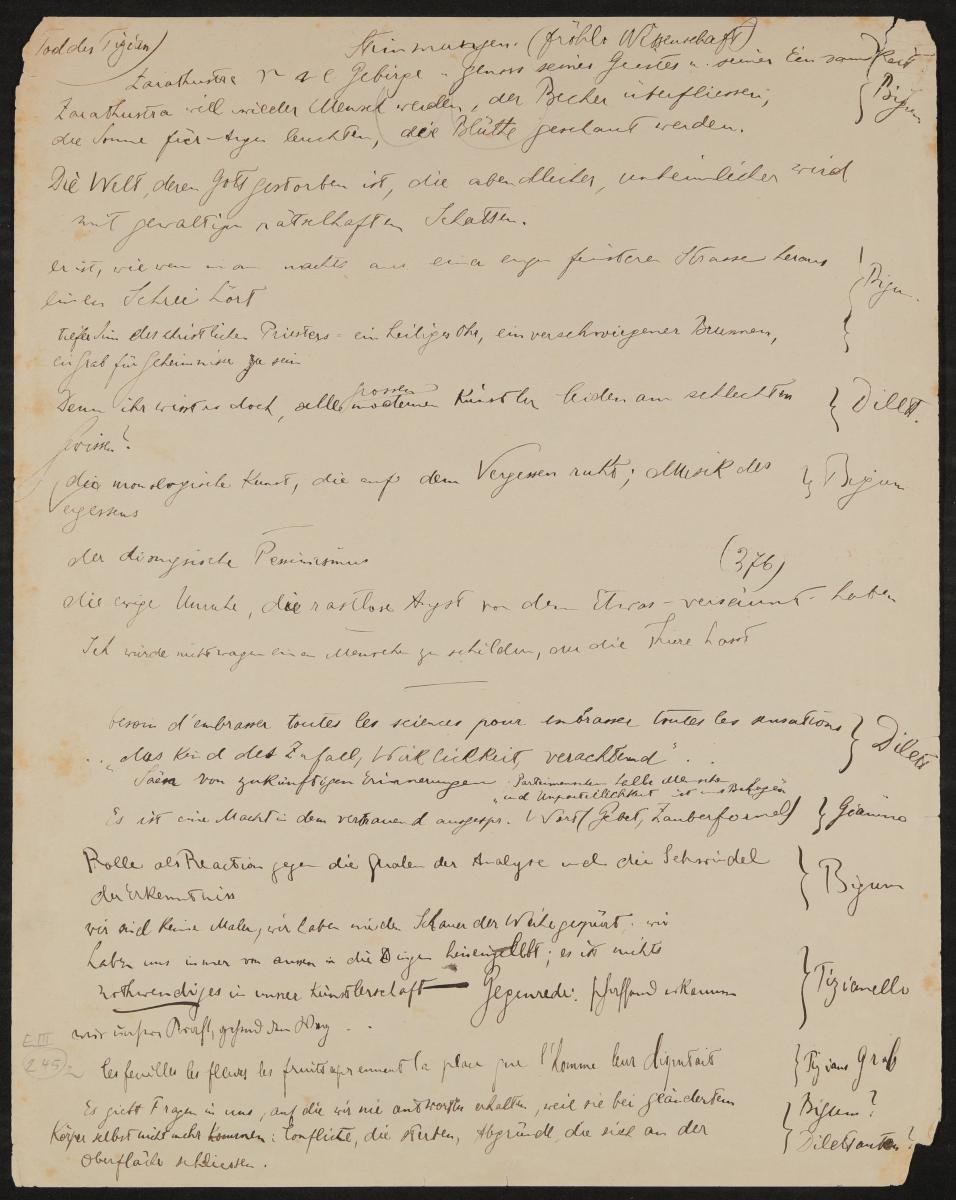 (Tod des Tizian) Stimmungen. (fröhl. Wissenschaft)
Zarathustra Gebirge genoss seines Geistes u. seiner Einsamkeit
Zarathustra will wieder Mensch werden, der Becher überfliessen; } Bigum
die Sonne für Augen leuchten, die Blüthe geschaut werden.
Die Welt, deren Gott gestorben ist, die abendlicher, unheimlicher wird
mit gewaltigen rätselhaften Schatten.
er ist, wie wenn man nachts aus einer engen finsteren Strasse heraus } Bigu.
einen Schrei hört
tiefer Sinn des christlichen Priesters = ein heiliges Ohr, ein verschwiegener Brunnen, }
ein Grab für Geheimnisse zu sein
Denn ihr wisst es doch, alle grossen modernen Künstler leiden am schlechten } Dilett.
Gewissen!
die monologische Kunst, die auf dem Vergessen ruht; Musik des } Bigum
Vergessens
der dionysische Pessimismus (376)
die ewige Unruhe, die rastlose Angst vor dem Etwas-versäumt-haben
Ich würde nicht wagen einen Menschen zu schildern, der die Thiere hasst
besoin d'embrasser toutes les sciences pour embrasser toutes les sensations } Dilett
.. "das Kind des Zufall, Wirklichkeit verachtend" ..
Säen von zukünftigen Erinnerungen "Parteinehmen halbe Menschen
und Unparteilichkeit ist uns Behagen
Es ist eine Macht in dem vertrauend ausgespr. Wort (Gebet, Zauberformel) } Gianino
Rolle als Reaction gegen die Qualen der Analyse und die Schwindel } Bigum
der Erkenntniss
wir sind keine Maler, wir haben nie den Schauer der Weihe gespürt. wir
haben uns immer von aussen in die Dinge hineingelebt; es ist nichts } Tizianello
nothwendiges in unsrer Künstlerschaft — Gegenrede: schaffend erkennen
wir unsere Kraft, gehend den Weg ..
E III
245
les feuilles les fleurs les fruits aprennent la place que l'homme leur disputait } Tizians Grab
Es giebt Fragen in uns, auf die wir nie antworten erhalten, weil sie bei geändertem } Bigum?
Körper selbst nicht mehr kommen: Conflicte, die sterben, Abgründe, die sich an der } Dilettanten?
Oberfläche schliessen.